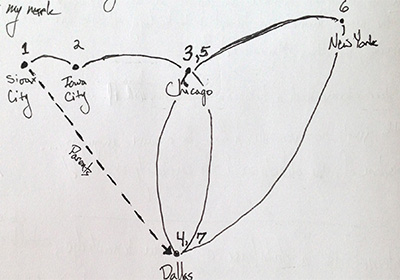 my
1
Sioux
City
2
Iowa
City
3,5
Chicago
6
New York
Parents
4, 7
Dallas